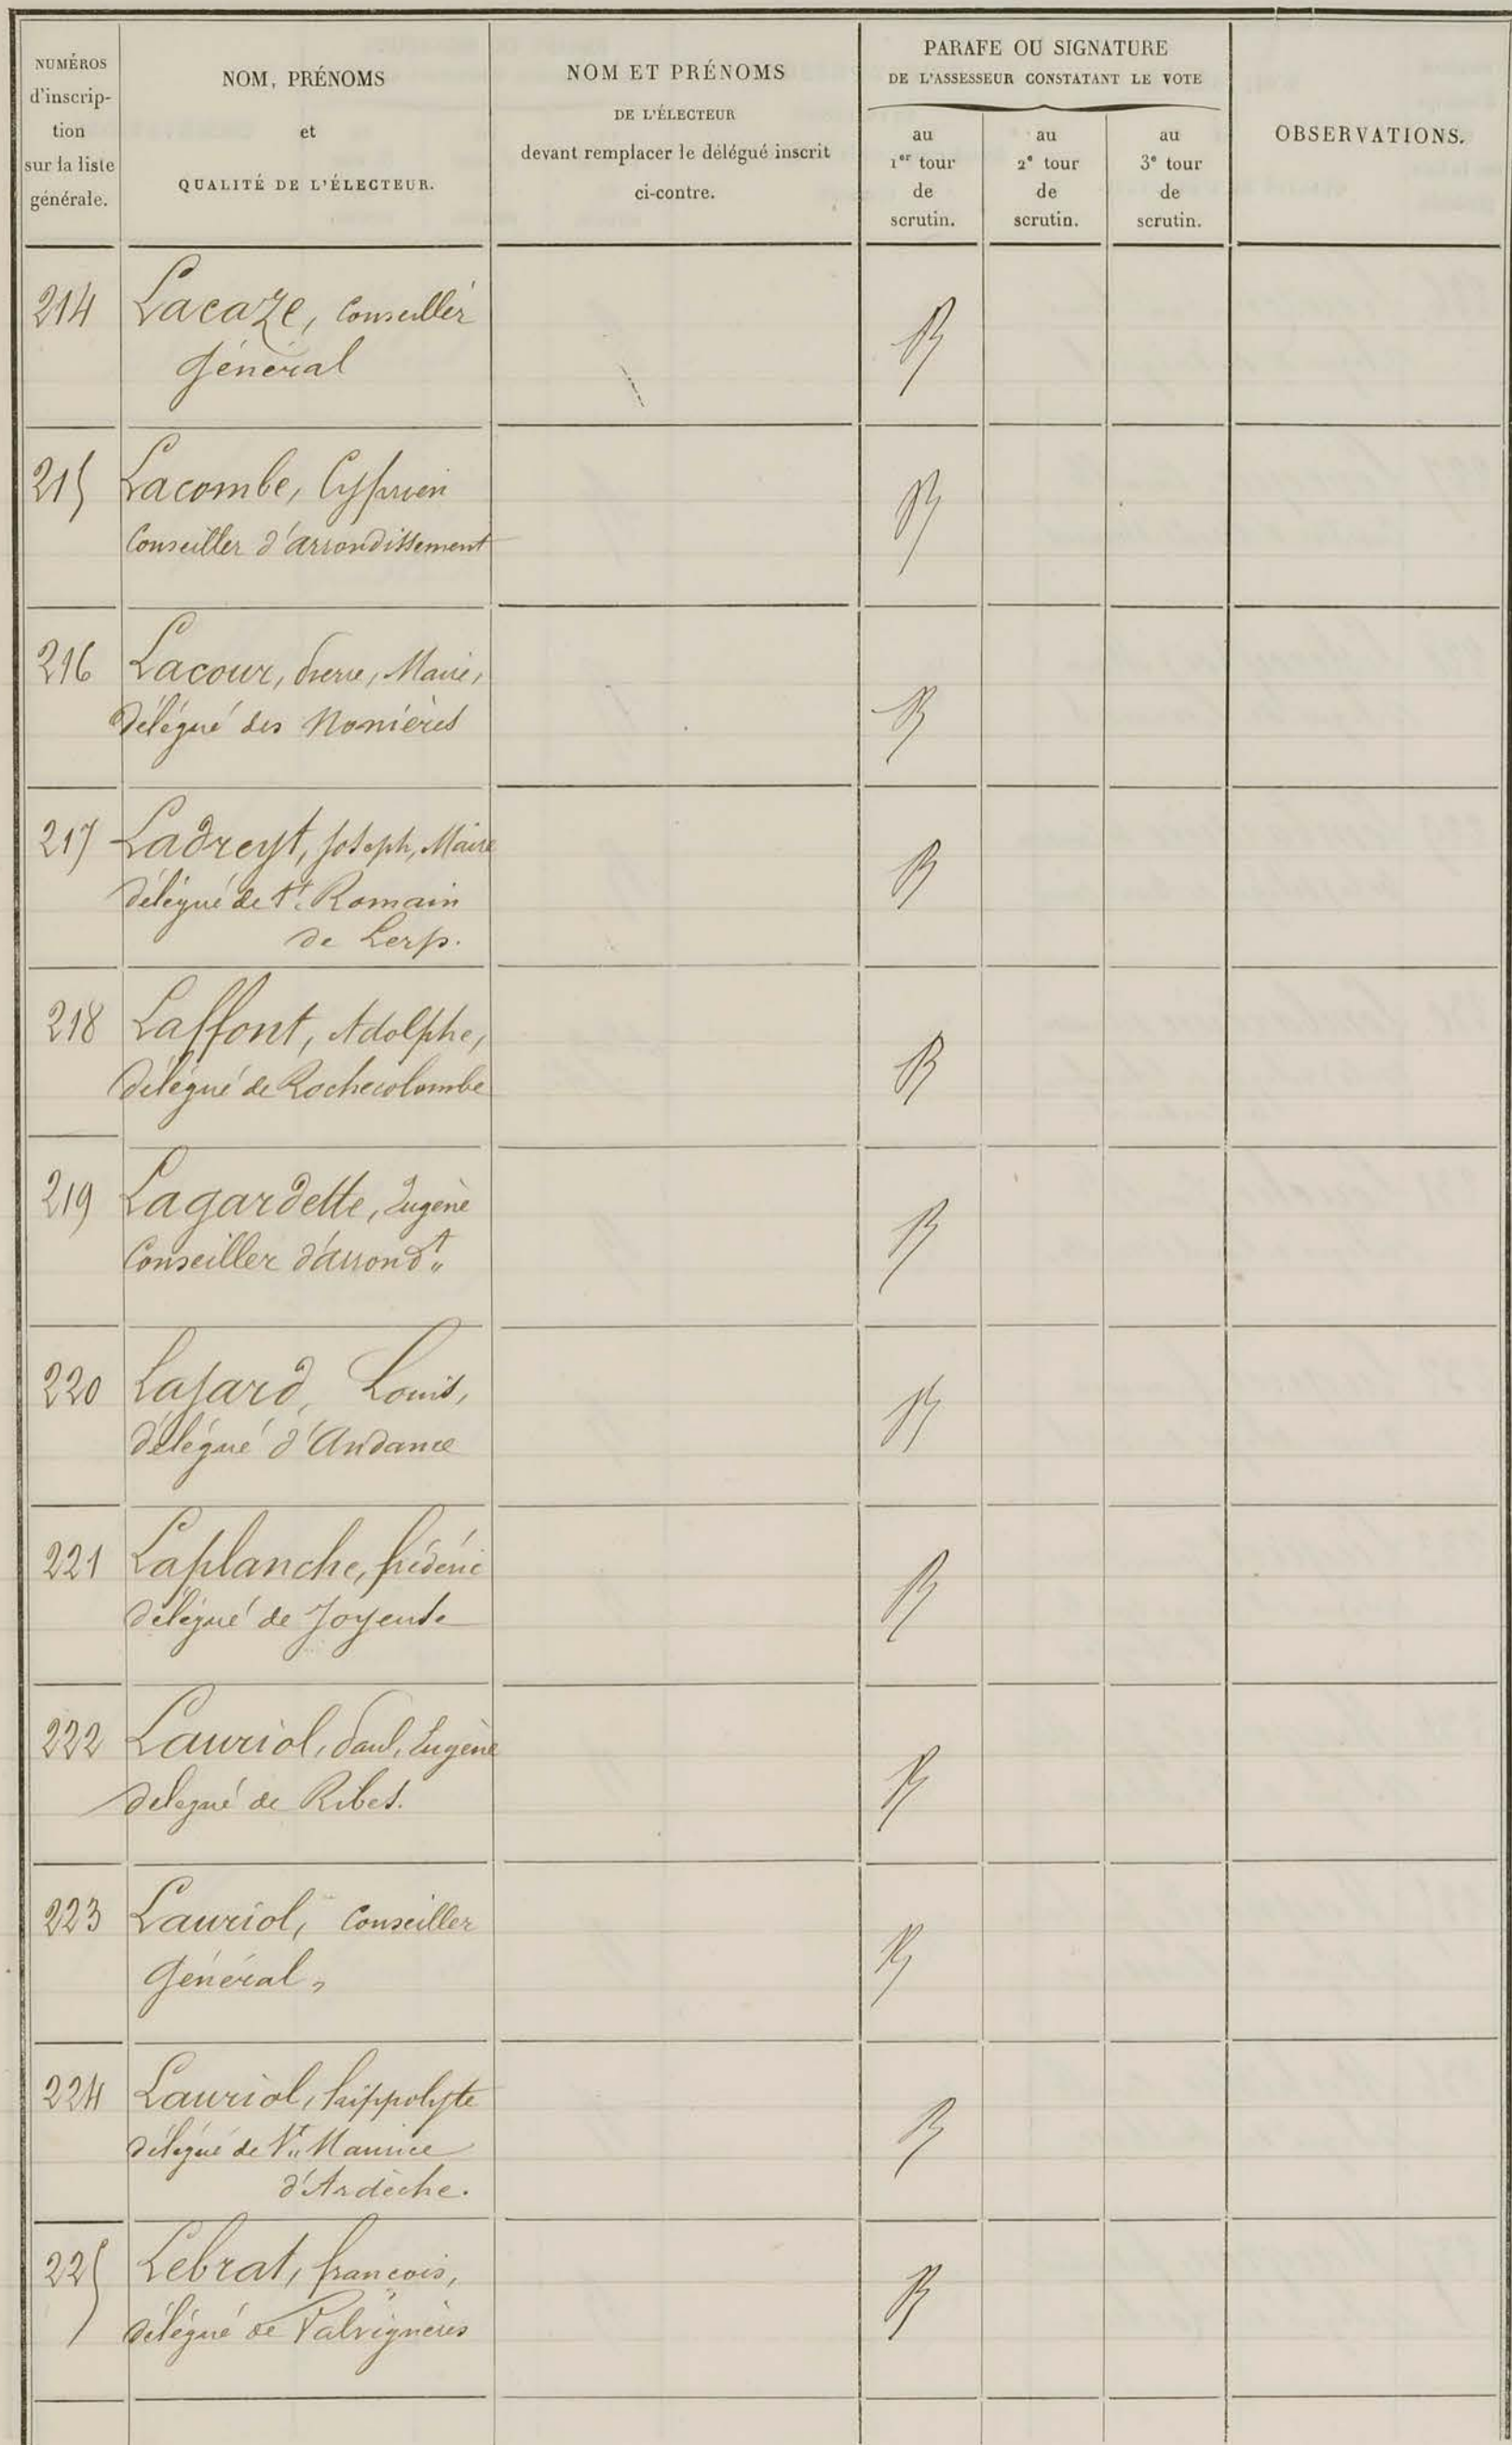 NUMÉROS
d'inscrip-
tion
sur la liste
générale.
NOM, PRÉNOMS
et
QUALITÉ DE L'ÉLECTEUR.
NOM ET PRÉNOMS
DE L'ÉLECTEUR
devant remplacer le délégué inscrit
ci-contre.
PARAFE OU SIGNATURE
DE L'ASSESSEUR CONSTATANT LE VOTE
au
1er tour
de
scrutin.
au
2e tour
de
scrutin.
au
3e tour
de
scrutin.
OBSERVATIONS.
214 Lacaze, Conseiller
Général
215 Lacombe, Cyprien
Conseiller d'arrondissement
216 Lacour, Pierre, Maire,
délégué des Nonières
217 Ladreyt, Joseph, Maire
délégué de St. Romain
de Lerp.
218 Laffont, Adolphe,
délégué de Rochecolombe
219 Lagardette, Eugène
Conseiller d'arrondt
220 Lafard, Louis,
délégué d'Andance
221 Laplanche, frédéric
délégué de Joyeuse
222 Lauriol, Paul, Eugène
délégué de Ribes.
223 Lauriol, Conseiller
Général,
224 Lauriol, hippolyte
délégué de St Maurice
d'Ardèche.
225 Lebrat, françois,
délégué de Valvignères